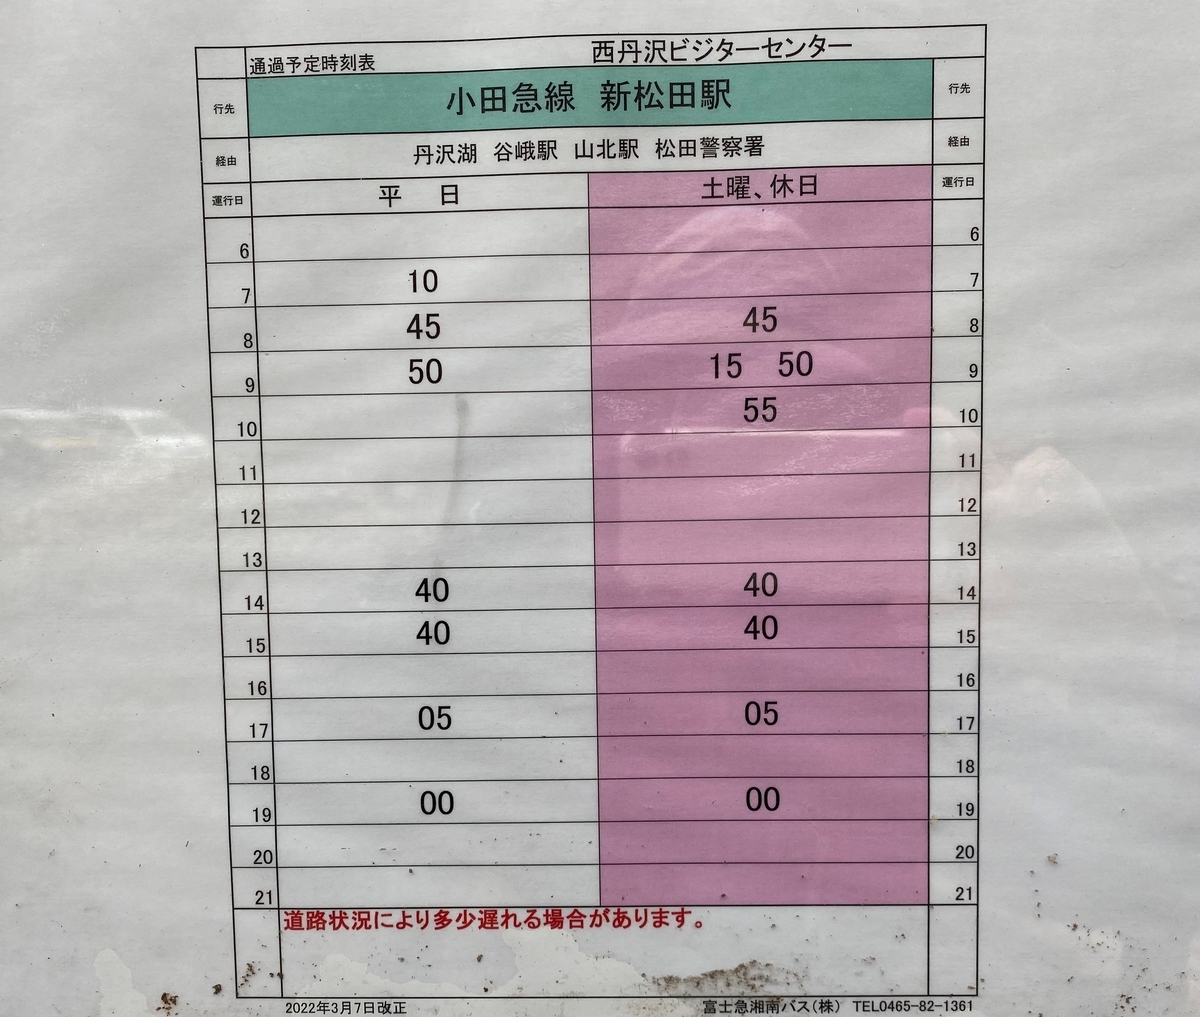 通過予定時刻表 西丹沢ビジターセンター
行先 小田急線 新松田駅 行先
経由 丹沢湖 谷峨駅 山北駅 松田警察署 経由
運行日 平 日 土曜、休日 運行日
6 6
7 10 7
8 45 45 8
9 50 15 50 9
10 55 10
11 11
12 12
13 13
14 40 40 14
15 40 40 15
16 16
17 05 05 17
18 18
19 00 00 19
20 20
21 21
道路状況により多少遅れる場合があります。
2022年3月7日改正 富士急湘南バス(株) TEL0465-82-1361